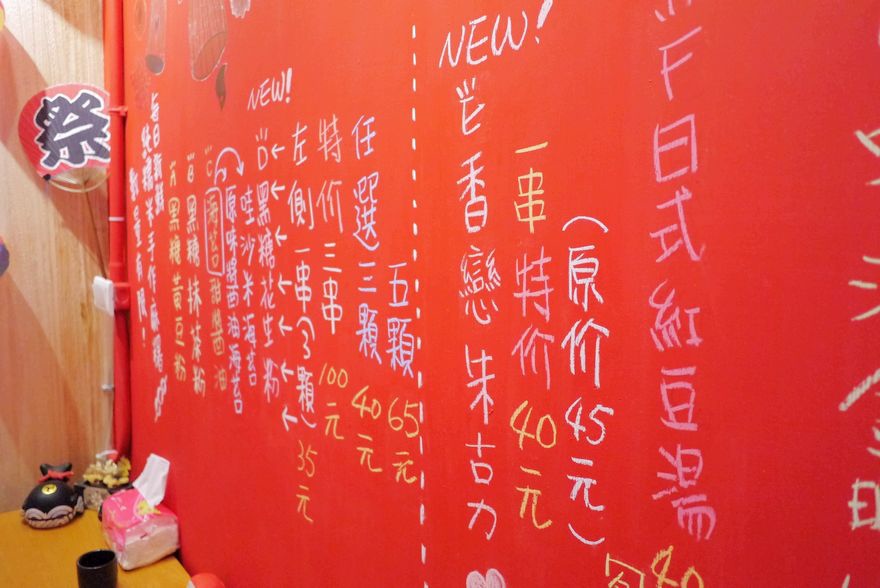 祭
每日新鮮
純糯米手作麻糬
數量有限!
A黑糖黃豆粉
B黑糖抹茶粉
C海苔甜醬油
原味醬油海苔
哇沙米海苔
NEW!
D黑糖花生粉
左側一串(3顆)35元
特价三串100元
任選三顆40元
五顆65元
NEW!
E香戀朱古力
一串特价40元
(原价45元)
F日式紅豆湯